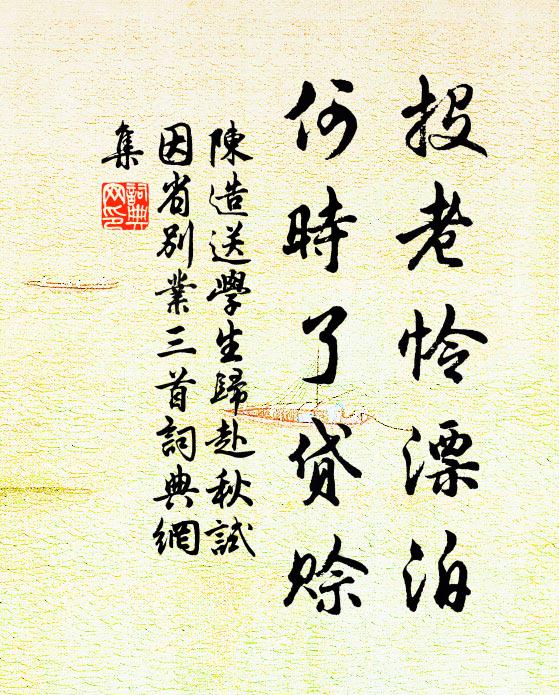 投老怜漂泊
何時了貸赊
陳造送學生歸赴秋試
因省別業三首詞典網
集
詞典
网印